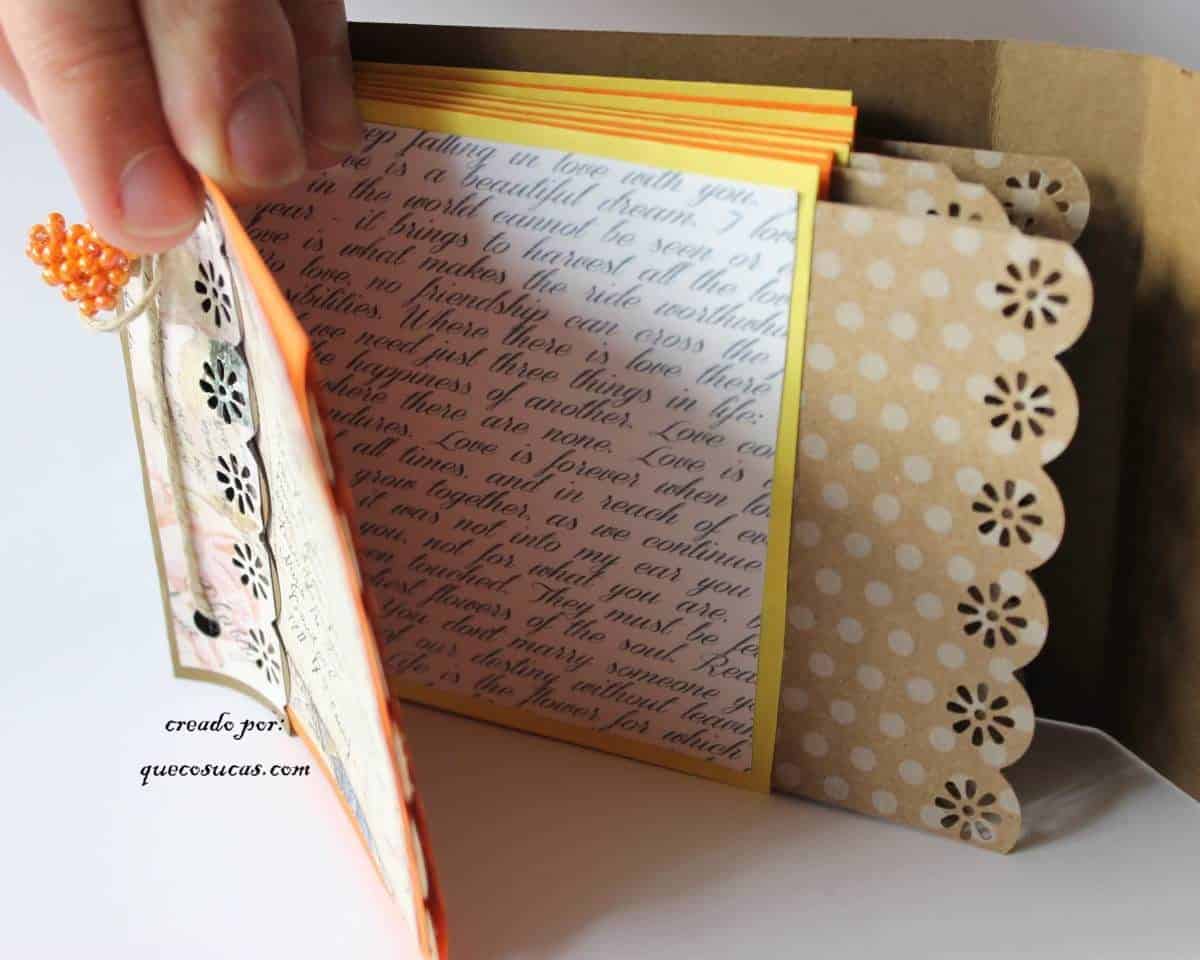 falling in love with you.
is a beautiful dream. I
in the world cannot be seen or
year - it brings to harvest all the
love is what makes the ride
love, no friendship can cross the
Where there is love there
we need just three things in life:
happiness of another. Love
where there are none. Love is
Love is forever when
all times, and in reach of
grow together, as we continue
it was not into my ear you
you, not for what you are,
touched. They must be
flowers of the soul.
You dont marry someone
of our destiny without
Life is the flower for which
creado por:
quecosucas.com